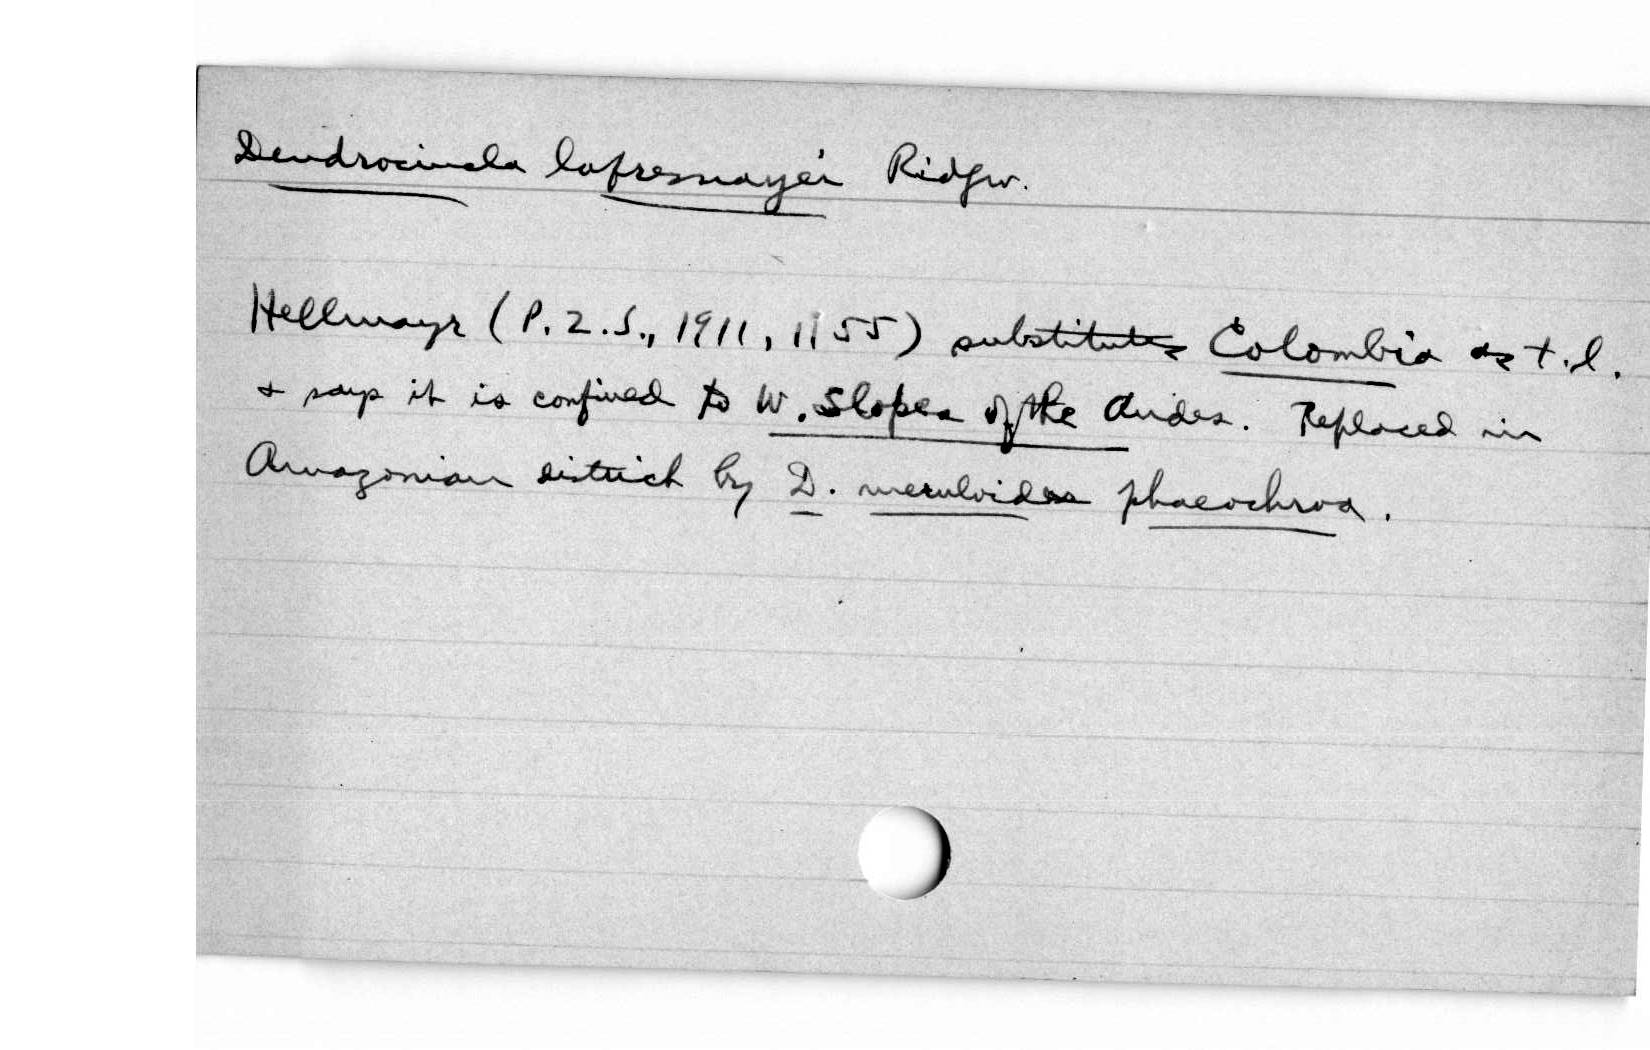 Dendrocincla lafresnayei Ridgw.
Hellmayr (P.Z.S., 1911, 1155) substitutes Colombia as t.l.
& says it is confined to W. Slopes of the Andes. Replaced in
Amazonian district by D. meruloides phaeochroa.